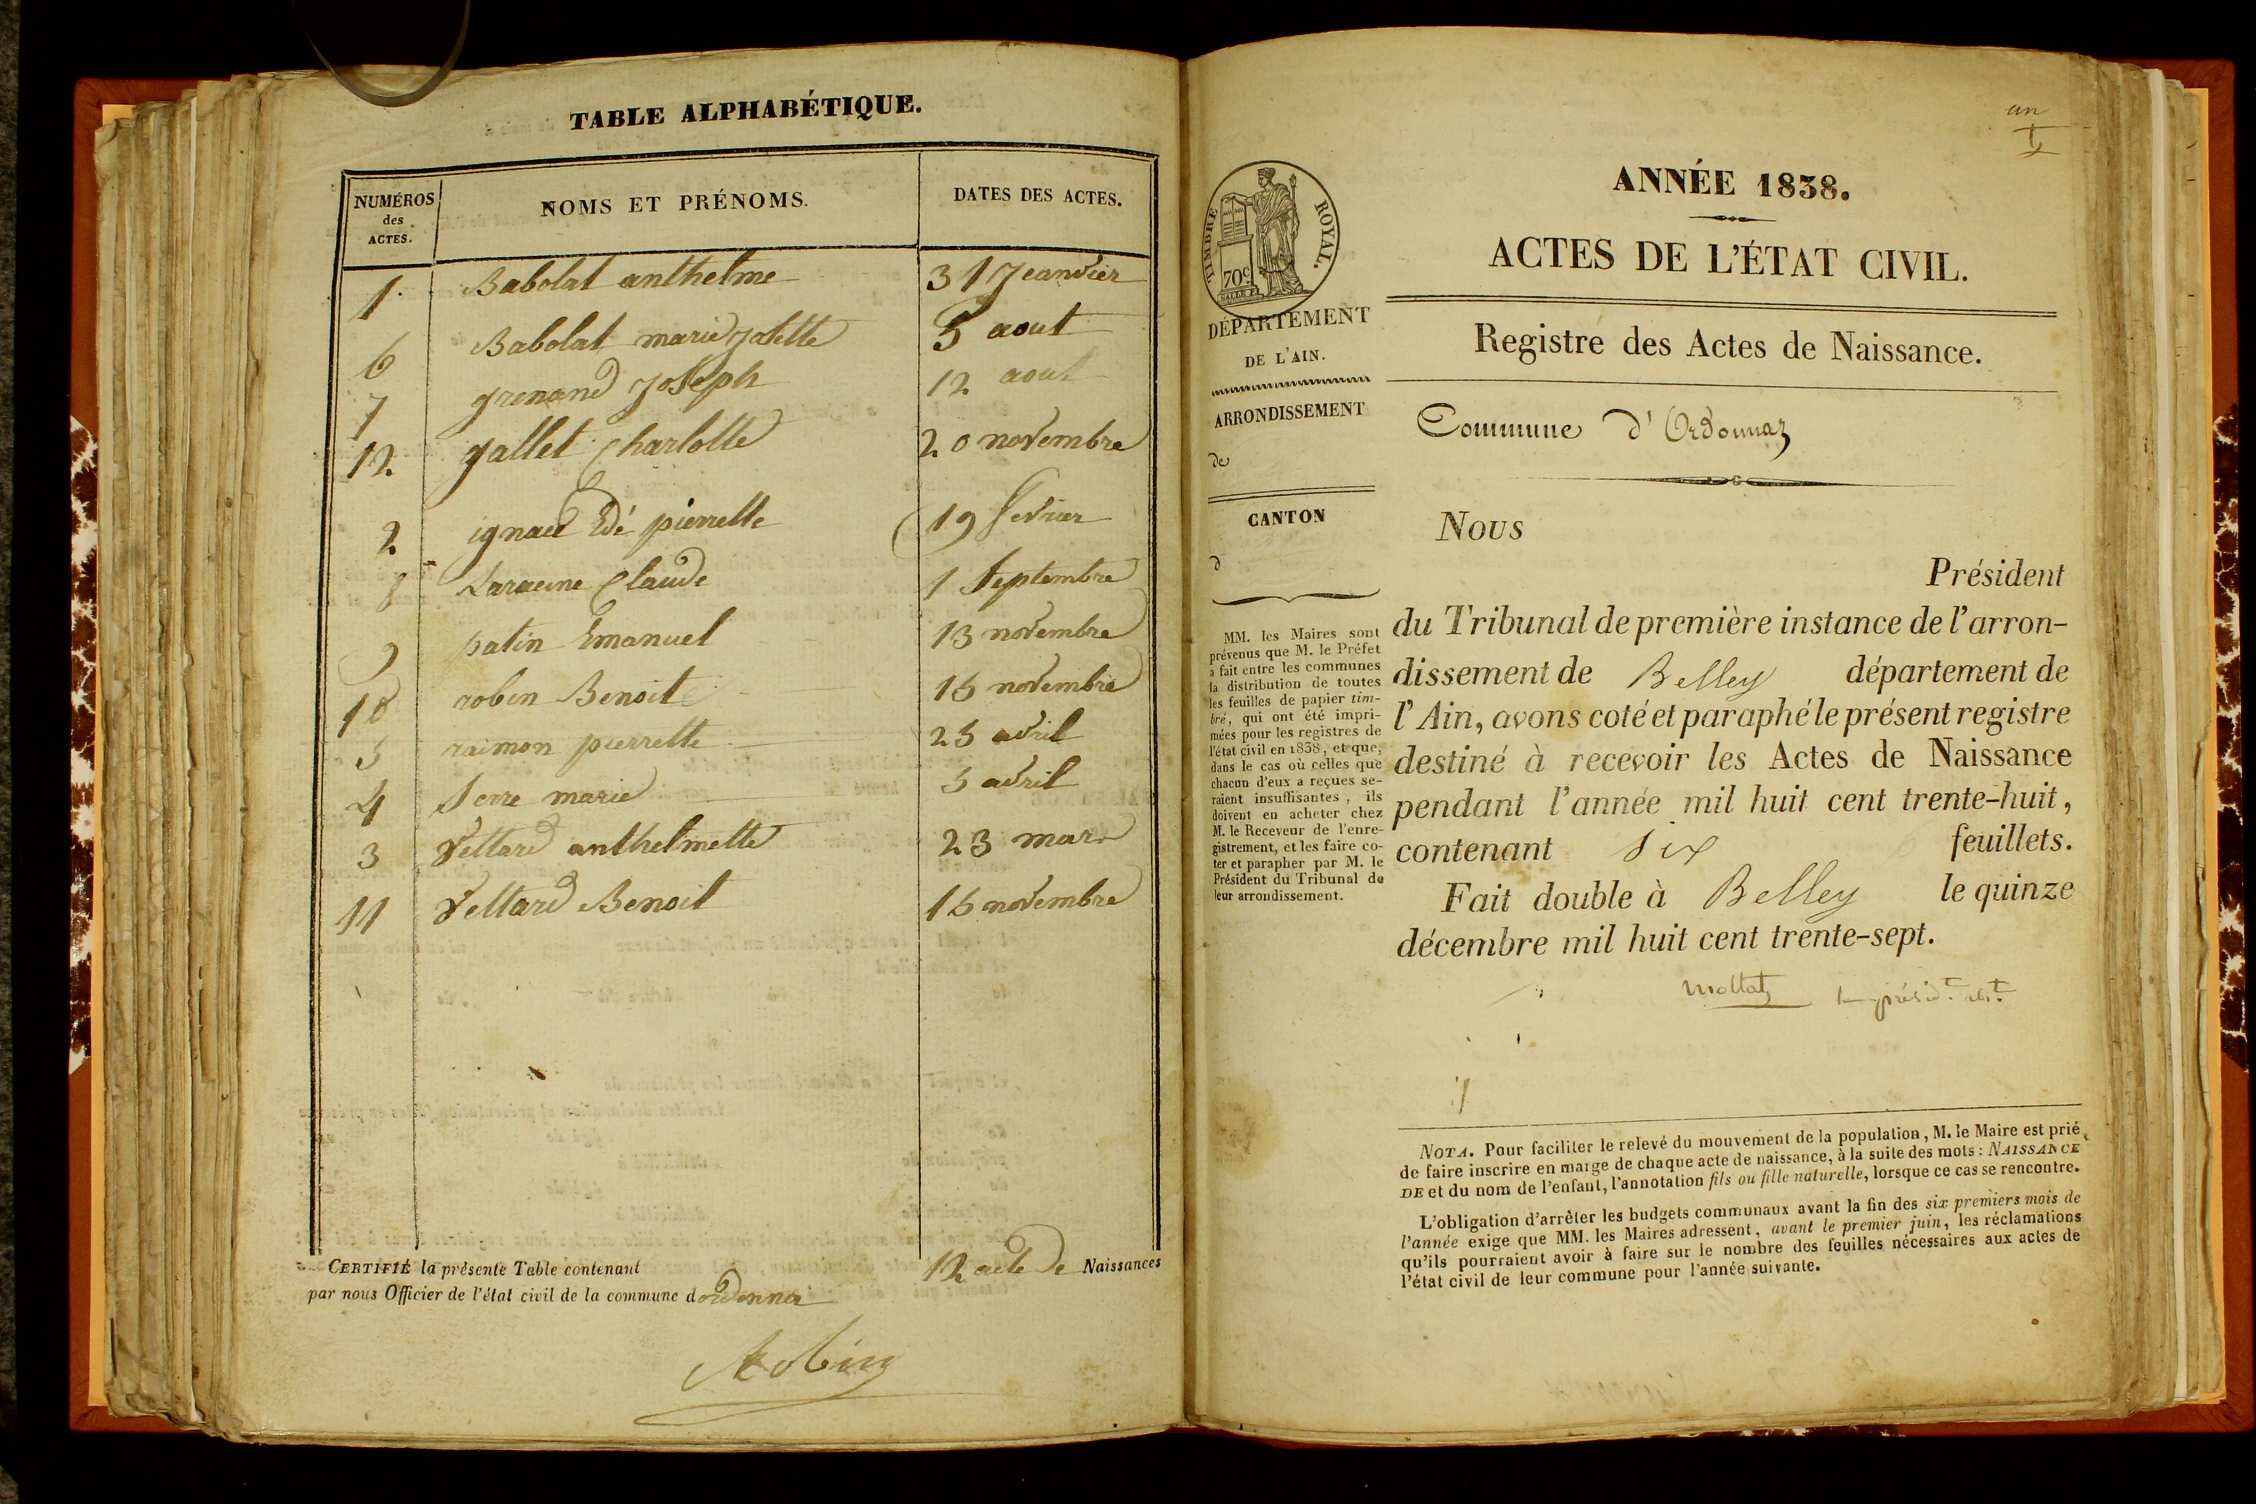 TABLE ALPHABÉTIQUE.
NUMÉROS des ACTES. NOMS ET PRÉNOMS. DATES DES ACTES.
1. Babolat anthelme 31 jeanvier
6 Babolat marie josette 5 aout
7 grenand joseph 12 aout
12 gallet Charlotte 20 novembre
2 pierrette 19 fevrier
8 Laracine Claude 1 Septembre
9 patin Emanuel 13 novembre
10 robin Benoit 15 novembre
5 raimon pierrette 25 avril
4 Serre marie 5 avril
3 vettard anthelmette 23 mars
11 vettard Benoit 16 novembre
CERTIFIÉ la présente Table contenant 12 acte de Naissances
par nous Officier de l'état civil de la commune dordonnaz
Robin
un
1
TIMBRE ROYAL.
70c.
DÉPARTEMENT
DE L'AIN.
ARRONDISSEMENT
de
CANTON
d
MM. les Maires sont
prévenus que M. le Préfet
a fait entre les communes
la distribution de toutes
les feuilles de papier tim-
bré, qui ont été impri-
mées pour les registres de
l'état civil en 1838, et que,
dans le cas où celles que
chacun d'eux a reçues se-
raient insuffisantes, ils
doivent en acheter chez
M. le Receveur de l'enre-
gistrement, et les faire co-
ter et parapher par M. le
Président du Tribunal de
leur arrondissement.
ANNÉE 1838.
ACTES DE L'ÉTAT CIVIL.
Registre des Actes de Naissance.
Commune d'Ordonnaz
Nous
Président
du Tribunal de première instance de l'arron-
dissement de Belley département de
l'Ain, avons coté et paraphé le présent registre
destiné à recevoir les Actes de Naissance
pendant l'année mil huit cent trente-huit,
contenant six feuillets.
Fait double à Belley le quinze
décembre mil huit cent trente-sept.
NOTA. Pour faciliter le relevé du mouvement de la population, M. le Maire est prié
de faire inscrire en marge de chaque acte de naissance, à la suite des mots: NAISSANCE
DE et du nom de l'enfant, l'annotation fils ou fille naturelle, lorsque ce cas se rencontre.
L'obligation d'arrêter les budgets communaux avant la fin des six premiers mois de
l'année exige que MM. les Maires adressent, avant le premier juin, les réclamations
qu'ils pourraient avoir à faire sur le nombre des feuilles nécessaires aux actes de
l'état civil de leur commune pour l'année suivante.